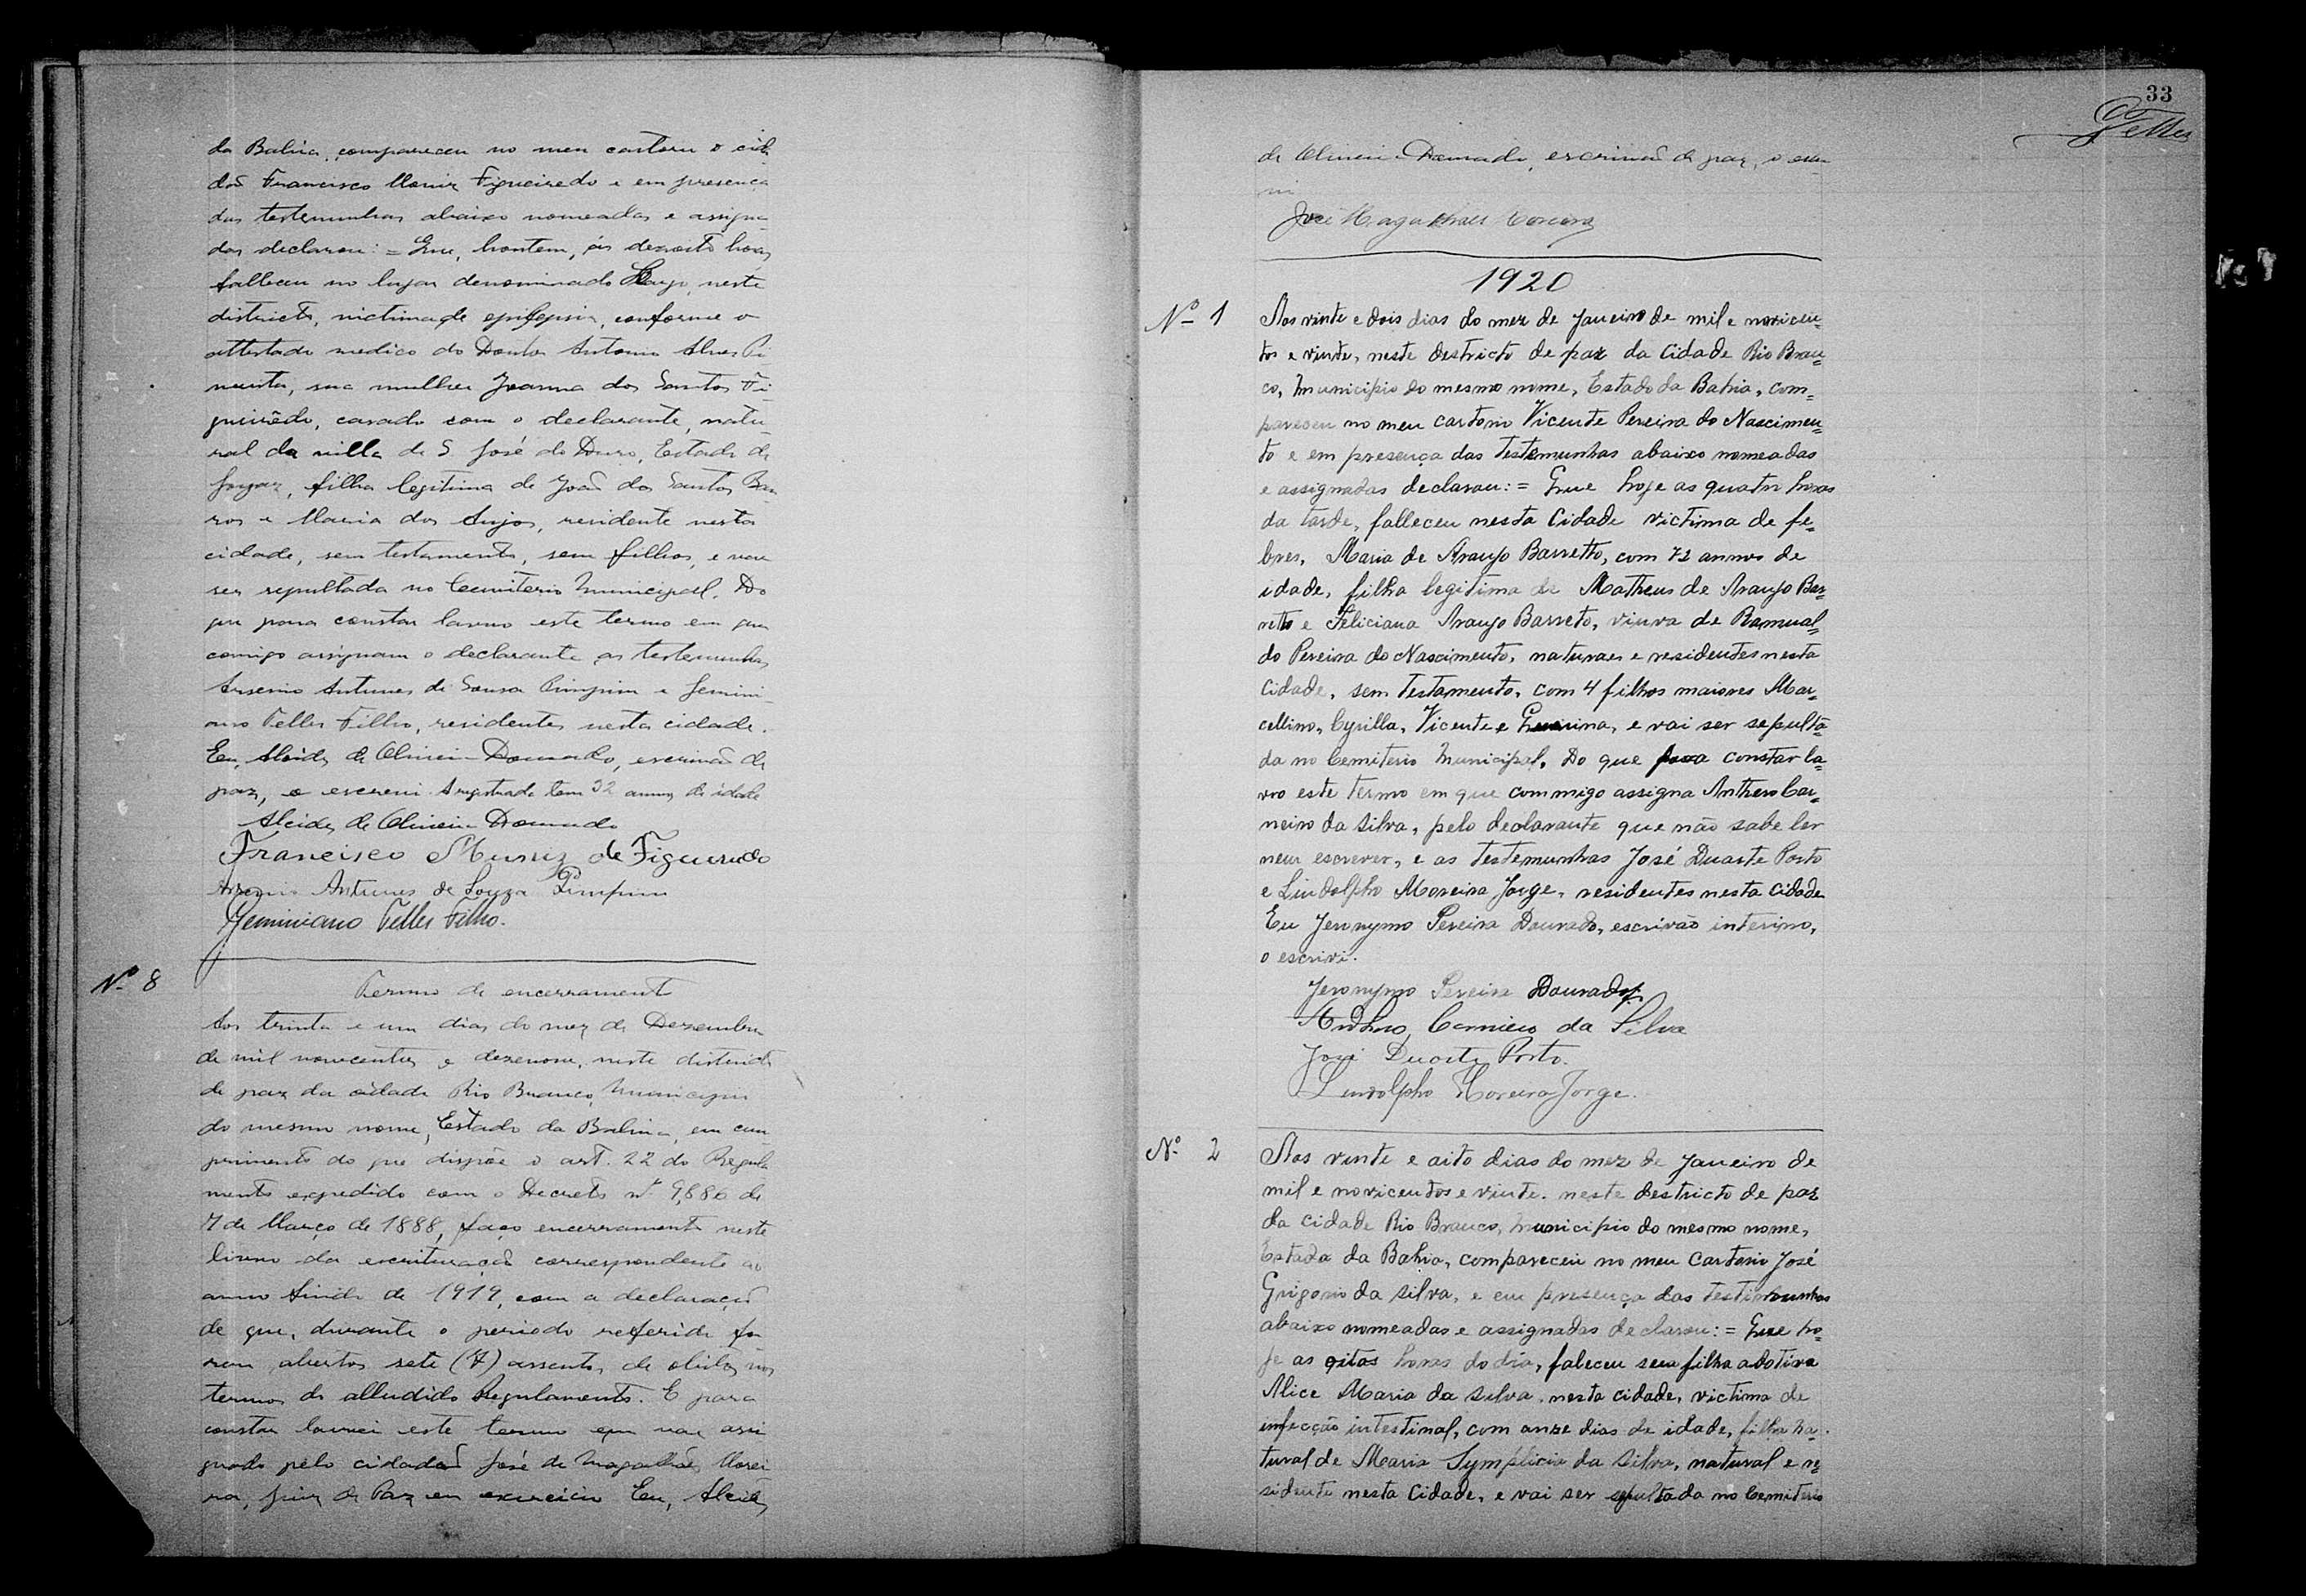 da Bahia, compareceu no meu cartorio o cida
dão Francisco Moniz Figueiredo e em presença
das testemunhas abaixo nomeadas e assigna
das declarou: = Que, hontem, ás dezoito horas
falleceu no lugar denominado neste
districto, victima de epilepsia, conforme o
attestado medico do Doutor Antonio Alves Pi
menta, sua mulher Joanna dos Santos Fi
gueirêdo, casado com o declarante, natu
ral da villa de S. José do Duro, Estado de
Goyaz, filha legitima de João dos Santos Bar
ros e Maria dos Anjos, residente nesta
cidade, sem testamento, sem filhos, e vae
ser sepultada no Cemiterio Municipal. Do
que para constar lavro este termo em que
comigo assignam o declarante as testemunhas
Arsenio Antunes de Sousa Pimpim e Gemini
ano Telles Filho, residentes nesta cidade.
Eu, Alcides de Oliveira Dourado, escrivão de
paz, o escrevi. A registrada tem 32 annos de idade
Alcides de Oliveira Dourado
Francisco Muniz de Figueiredo
Arsenio Antunes de Souza Pimpim
Geminiano Telles Filho.
Nº 8
Termo de encerramento
Aos trinta e um dias do mez de Dezembro
de mil novecentos e dezenove, neste districto
de paz da cidade Rio Branco, Municipio
do mesmo nome, Estado da Bahia, em cum
primento do que dispõe o art. 22 do Regula
mento expedido com o Decreto nº 9,886 de
7 de Março de 1888, faço encerramento neste
livro da escrituração correspondente ao
anno findo de 1919, com a declaração
de que, durante o periodo referido fo
ram abertos sete (7) assentos de obitos nos
termos do alludido Regulamento. E para
constar lavrei este termo que vae assi
gnado pelo cidadão José de Magalhães Morei
ra, Juiz de Paz em exercicio Eu, Alcides
33
Telles
de Oliveira Dourado, escrivão de paz, o escre
vi
José Magalhães Moreira
1920
Nº 1
Aos vinte e dois dias do mez de Janeiro de mil e novicen=
tos e vinte, neste destricto de paz da Cidade Rio Bran=
co, Municipio do mesmo nome, Estado da Bahia, com=
pareceu no meu cartorio Vicente Pereira do Nascimen=
to e em presença das testemunhas abaixo nomeadas
e assignadas declarou: = Que hoje as quatro horas
da tarde, falleceu nesta Cidade victima de fe=
bres, Maria de Araujo Barretto, com 72 annos de
idade, filha legitima de Matheus de Araujo Bar=
retto e Feliciana Araujo Barreto, viuva de Romual=
do Pereira do Nascimento, naturaes e residentes nesta
Cidade, sem testamento, com 4 filhos maiores Mar=
cellino, Cyrilla, Vicente e, e vai ser sepulta
da no Cemiterio Municipal. Do que para constar la=
vro este termo em que commigo assigna Anthero Car=
neiro da Silva, pelo declarante que não sabe ler
neur escrever, e as testemunhas José Duarte Porto
e Lindolpho Moreira Jorge, residentes nesta Cidade
Eu Jeronymo Pereira Dourado, escrivão interino,
o escrivi.
Jeronymo Pereira Dourado
Anthero Carneiro da Silva
José Duarte Porto.
Lindolpho Moreira Jorge.
Nº 2
Aos vinte e oito dias do mez de Janeiro de
mil e novicentos e vinte. neste destricto de paz
da Cidade Rio Branco, Municipio do mesmo nome,
Estado da Bahia, compareceu no meu Cartorio José
Grigorio da Silva, e em presença das testimunhas
abaixo nomeadas e assignadas declarou: = Que ho=
je as oitos horas do dia, faleceu sua filha adotiva
Alice Maria da Silva, nesta cidade, victima de
infecção intestinal, com onze dias de idade, filha na=
tural de Maria Symplicia da Silva, natural e re=
sidente nesta Cidade, e vai ser sepultada no Cemiterio